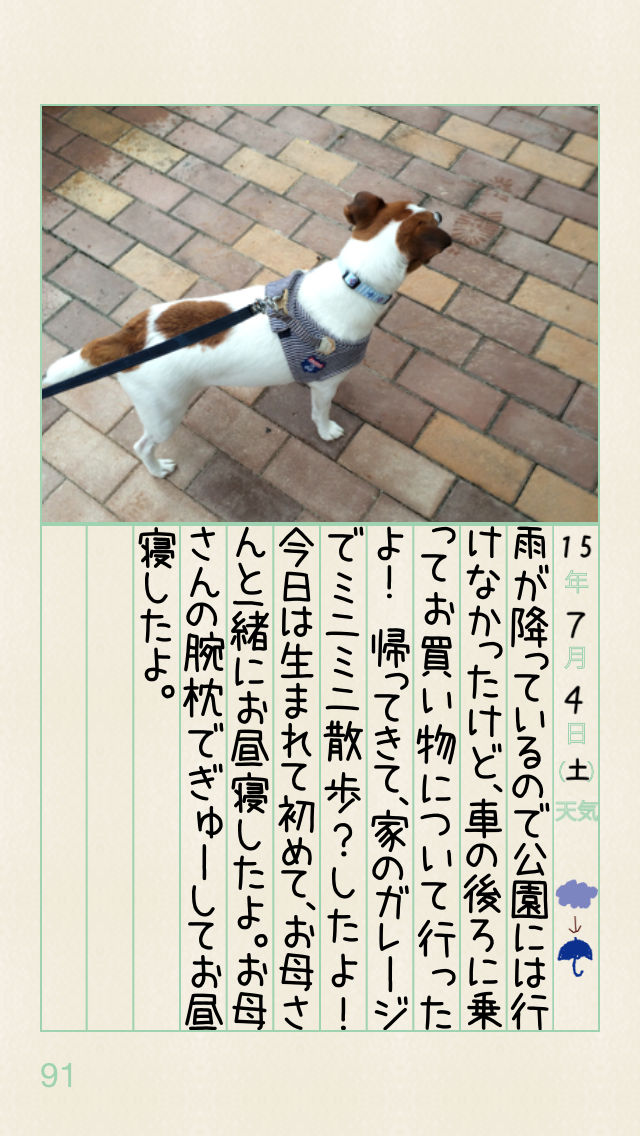 15年7月4日(土)天気
雨が降っているので公園には行
けなかったけど、車の後ろに乗
ってお買い物について行った
よ！　帰ってきて、家のガレージ
でミニミニ散歩？したよ！
今日は生まれて初めて、お母さ
んと一緒にお昼寝したよ。お母
さんの腕枕でぎゅーしてお昼
寝したよ。
91